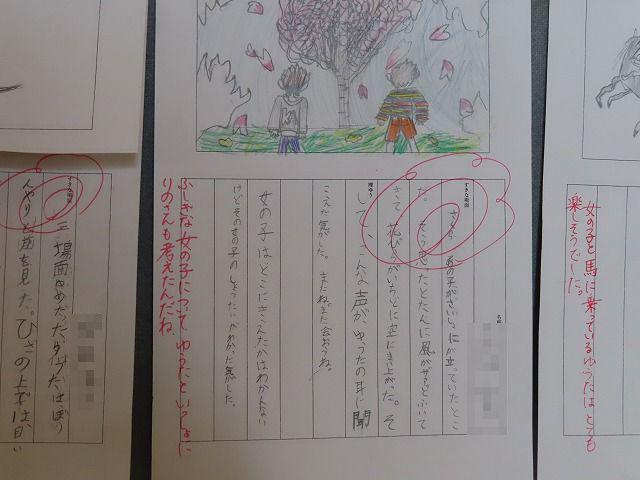 女の子と馬に乗っているゆうたはとても
楽しそうでした。
すきな場面
名前
た。そう思ったとたんに風がザあとふいて
きて花びらがいちどに空にまい上がった。そ
理ゆう
して、こんな声が、ゆうたの耳に聞
こえた気がした。またね。また会おうね。
女の子はどこにきえたかはわかんない
けどその女の子のしょうたいがわかった気がした。
ふしぎな女の子について、ゆうたといっしょに
りのさんも考えたんだね。
すきな場面
三場面
んやりと道を見た。ひざの上